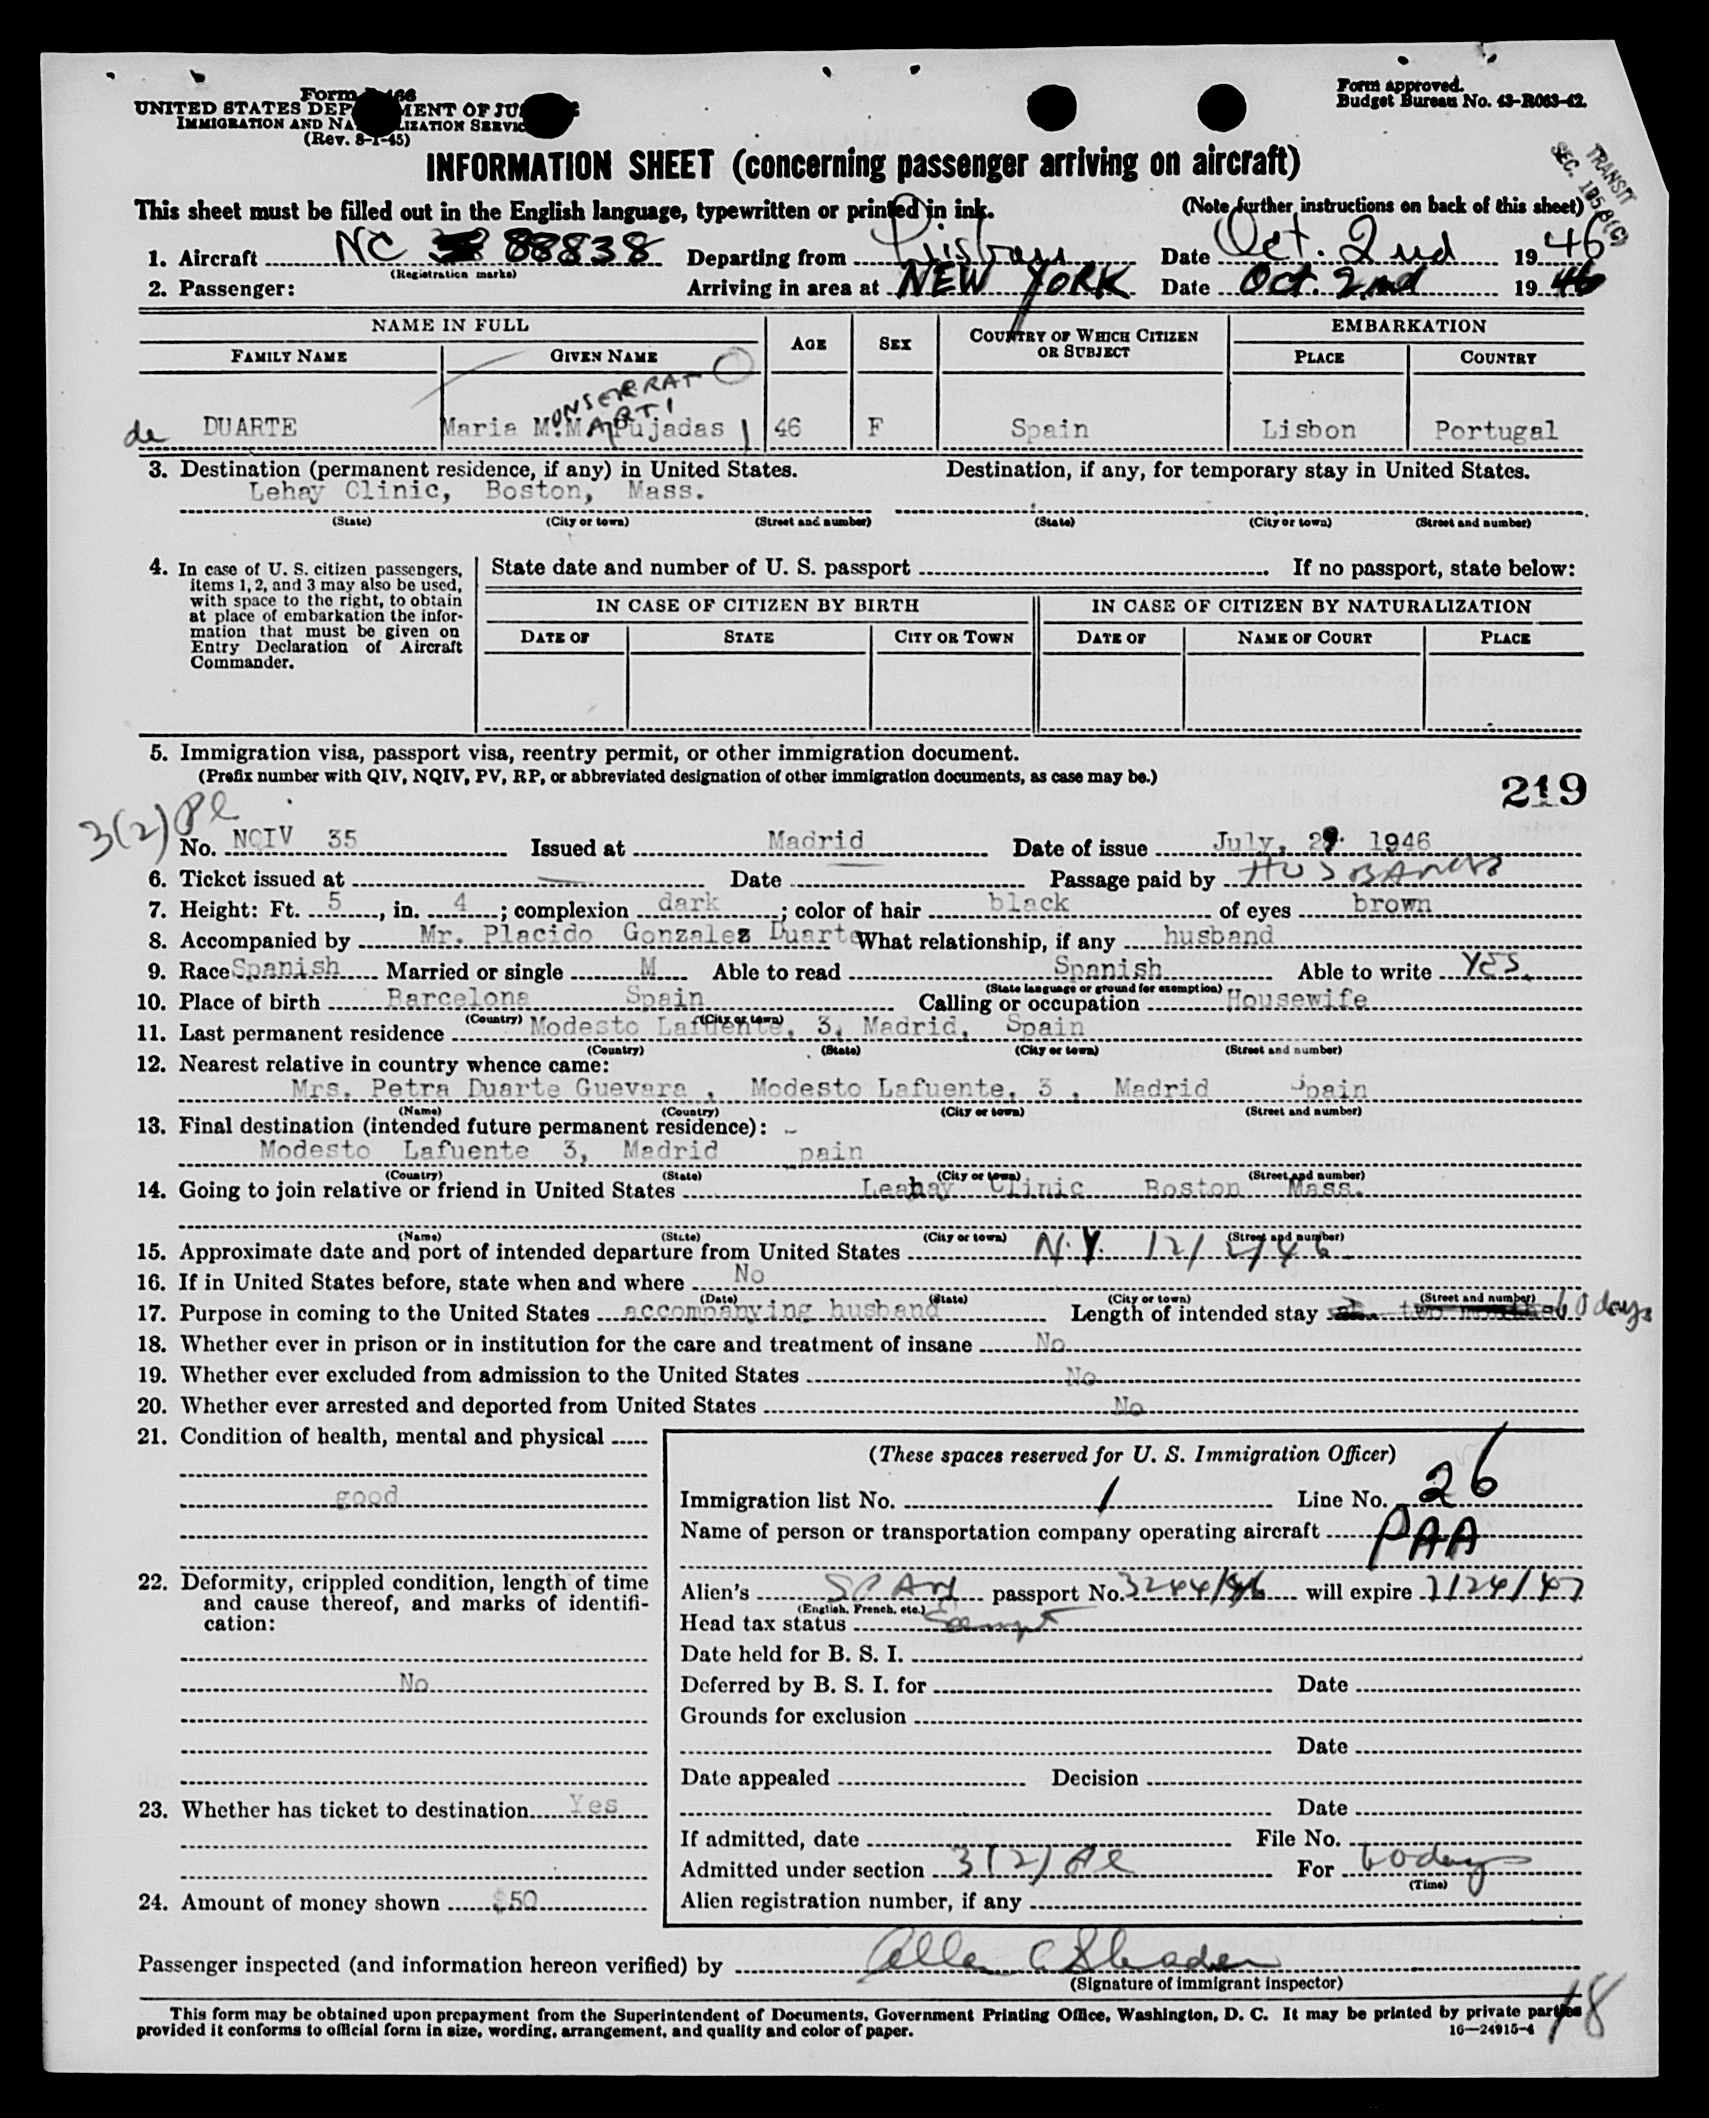 Form 466
UNITED STATES DEP MENT OF JU
IMMIGRATION AND NA LIZATION SERVIC
(Rev. 8-1-45)
Form approved.
Budget Bureau No. 43-R063-42.
TRANSIT
SEC.
INFORMATION SHEET (concerning passenger arriving on aircraft)
This sheet must be filled out in the English language, typewritten or printed in ink. (Note further instructions on back of this sheet)
1. Aircraft NC 88838 Departing from Lisbon Date Oct. 2nd 1946
(Registration marks)
2. Passenger: Arriving in area at NEW YORK Date Oct. 2nd 1946
NAME IN FULL AGE SEX COUNTRY OF WHICH CITIZEN OR SUBJECT EMBARKATION
FAMILY NAME GIVEN NAME PLACE COUNTRY
ONSERRAT
ARTI
de DUARTE Maria M. M Pujadas 46 F Spain Lisbon Portugal
3. Destination (permanent residence, if any) in United States. Destination, if any, for temporary stay in United States.
Lehay Clinic, Boston, Mass.
(State) (City or town) (Street and number) (State) (City or town) (Street and number)
4. In case of U. S. citizen passengers, items 1, 2, and 3 may also be used, with space to the right, to obtain at place of embarkation the information that must be given on Entry Declaration of Aircraft Commander.
State date and number of U. S. passport If no passport, state below:
IN CASE OF CITIZEN BY BIRTH IN CASE OF CITIZEN BY NATURALIZATION
DATE OF STATE CITY OR TOWN DATE OF NAME OF COURT PLACE
5. Immigration visa, passport visa, reentry permit, or other immigration document.
(Prefix number with QIV, NQIV, PV, RP, or abbreviated designation of other immigration documents, as case may be.)
219
3(2) Pl
No. NQIV 35 Issued at Madrid Date of issue July, 29. 1946
6. Ticket issued at Date Passage paid by HUSBAND
7. Height: Ft. 5, in. 4; complexion dark; color of hair black of eyes brown
8. Accompanied by Mr. Placido Gonzalez Duarte What relationship, if any husband
9. Race Spanish Married or single M Able to read Spanish Able to write YES.
(State language or ground for exemption)
10. Place of birth Barcelona Spain Calling or occupation Housewife
(Country) (City or town)
11. Last permanent residence Modesto Lafuente, 3, Madrid, Spain
(Country) (State) (City or town) (Street and number)
12. Nearest relative in country whence came:
Mrs. Petra Duarte Guevara , Modesto Lafuente, 3 , Madrid Spain
(Name) (Country) (City or town) (Street and number)
13. Final destination (intended future permanent residence):
Modesto Lafuente 3, Madrid pain
(Country) (State) (City or town) (Street and number)
14. Going to join relative or friend in United States Leahay Clinic Boston Mass.
(Name) (State) (City or town) (Street and number)
15. Approximate date and port of intended departure from United States N.Y. 12/2/46
16. If in United States before, state when and where No
(Date) (State) (City or town) (Street and number)
17. Purpose in coming to the United States accompanying husband Length of intended stay 60 days
18. Whether ever in prison or in institution for the care and treatment of insane No
19. Whether ever excluded from admission to the United States No
20. Whether ever arrested and deported from United States No
21. Condition of health, mental and physical
good
22. Deformity, crippled condition, length of time and cause thereof, and marks of identification:
No
23. Whether has ticket to destination Yes
24. Amount of money shown $50
(These spaces reserved for U. S. Immigration Officer)
Immigration list No. 1 Line No. 26
Name of person or transportation company operating aircraft PAA
Alien's SPAN passport No. 3244/46 will expire 7/24/47
(English, French, etc.)
Head tax status Exempt
Date held for B. S. I.
Deferred by B. S. I. for Date
Grounds for exclusion
Date
Date appealed Decision
Date
If admitted, date File No.
Admitted under section 3(2) Pl For 60 days
(Time)
Alien registration number, if any
Passenger inspected (and information hereon verified) by
(Signature of immigrant inspector)
18
This form may be obtained upon prepayment from the Superintendent of Documents, Government Printing Office, Washington, D. C. It may be printed by private parties
provided it conforms to official form in size, wording, arrangement, and quality and color of paper. 16—24915-4